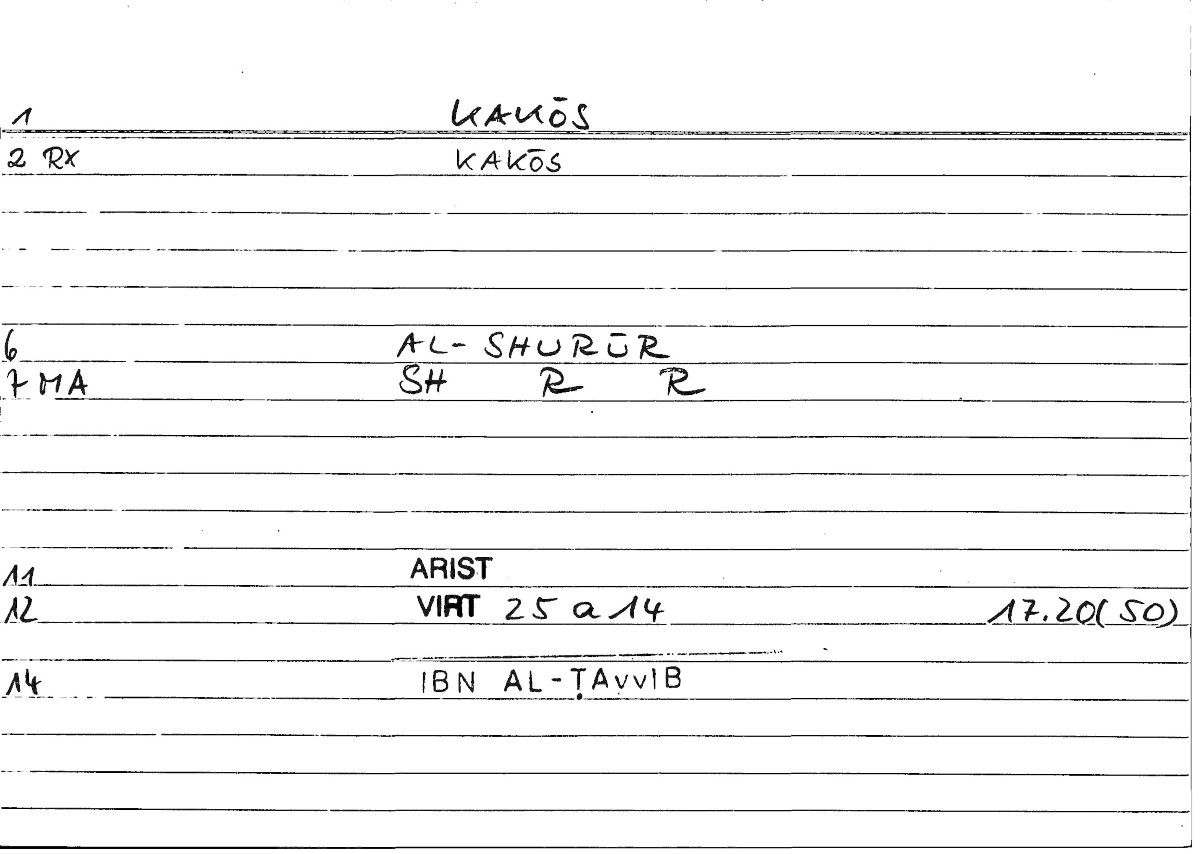 1 KAKŌS
2 RX KAKŌS
6 AL-SHURŪR
7 MA SH R R
11 ARIST
12 VIRT 25 a 14 17.20(50)
14 IBN AL-ṬAvvIB